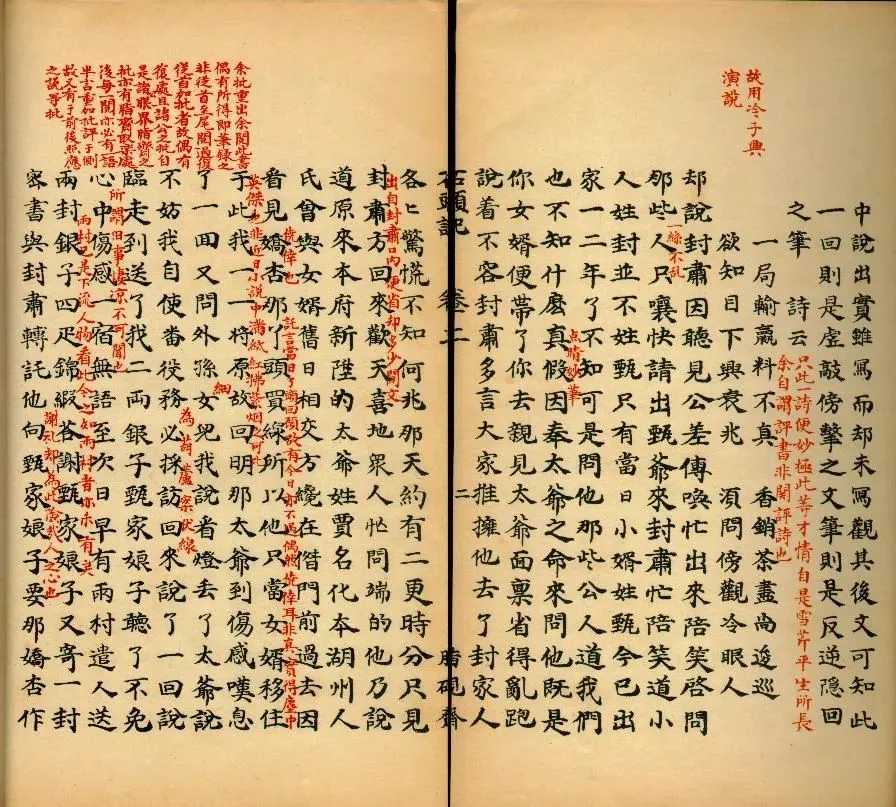 故用冷子興
演說
中說出實雖寫而却未寫觀其後文可知此
一回則是虛敲傍擊之文筆則是反逆隱回
之筆　詩云
只此一詩便妙極此等才情自是雪芹平生所長
余自謂評書非関評詩也
一局輸贏料不真　香銷茶盡尚逡巡
欲知目下興衰兆　須問傍觀冷眼人
却說封肅因聽見公差傳喚忙出來陪笑啓問
一絲不乱
那些人只嚷快請出甄爺來封肅忙陪笑道小
人姓封並不姓甄只有當日小婿姓甄今已出
家一二年了不知可是問他那些公人道我們
点睛妙筆
也不知什麽真假因奉太爺之命來問他既是
你女婿便帶了你去親見太爺面禀省得亂跑
說着不容封肅多言大家推擁他去了封家人
石頭記　卷二　二　脂硯齋
各〻驚慌不知何兆那天約有二更時分只見
出自封肅口内便省却多少閒文
封肅方回來歡天喜地衆人忙問端的他乃說
道原來本府新陞的太爺姓賈名化本湖州人
氏曾與女婿舊日相交方纔在偺門前過去因
僥倖也
託言當日丫頭回顧故有今日亦不過偶然僥倖耳非真實得塵中
看見嬌杏那丫頭買線所以他只當女婿移住
英傑也非近日小說中滿紙紅拂紫烟之可比
于此我一一將原故回明那太爺到傷感嘆息
細
了一回又問外孫女兒我說看燈丢了太爺說
為葫蘆案伏線
不妨我自使番役務必採訪回來說了一回說
臨走到送了我二両銀子甄家娘子聽了不免
所謂旧事凄凉不可聞也
心中傷感一宿無語至次日早有雨村遣人送
雨村已是下流人物看此今之如雨村者亦未有矣
兩封銀子四疋錦緞荅謝甄家娘子又寄一封
謝礼却為此險哉人之心也
宻書與封肅轉託他向甄家娘子要那嬌杏作
余批重出余閱此書
偶有所得即筆錄之
非從首至尾閱過復
從首加批者故偶有
復處且諸公之批自
是諸公眼界脂齋之
批亦有脂齋取樂處
後每一閱亦必有一語
半言重加批評于側
故又有于前後照應
之說等批